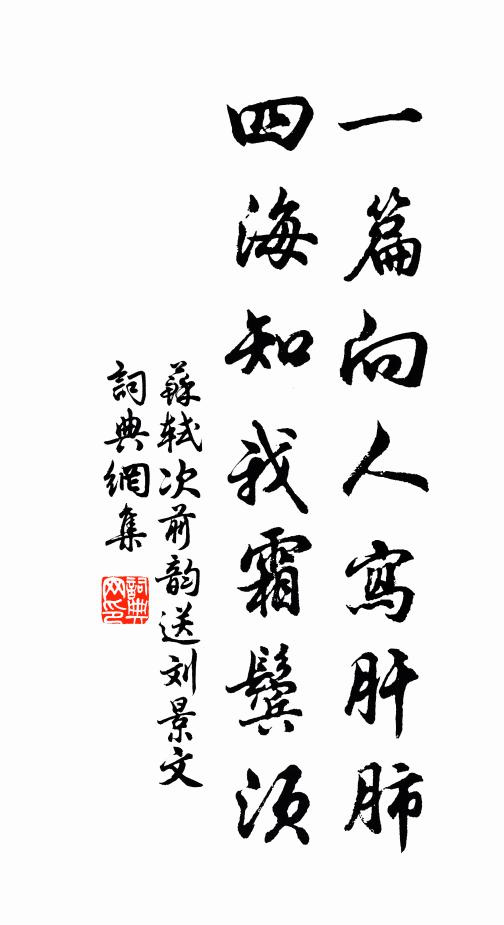 一篇向人寫肝肺
四海知我霜鬢須
蘇軾次前韵送刘景文
詞典網集
詞典網印